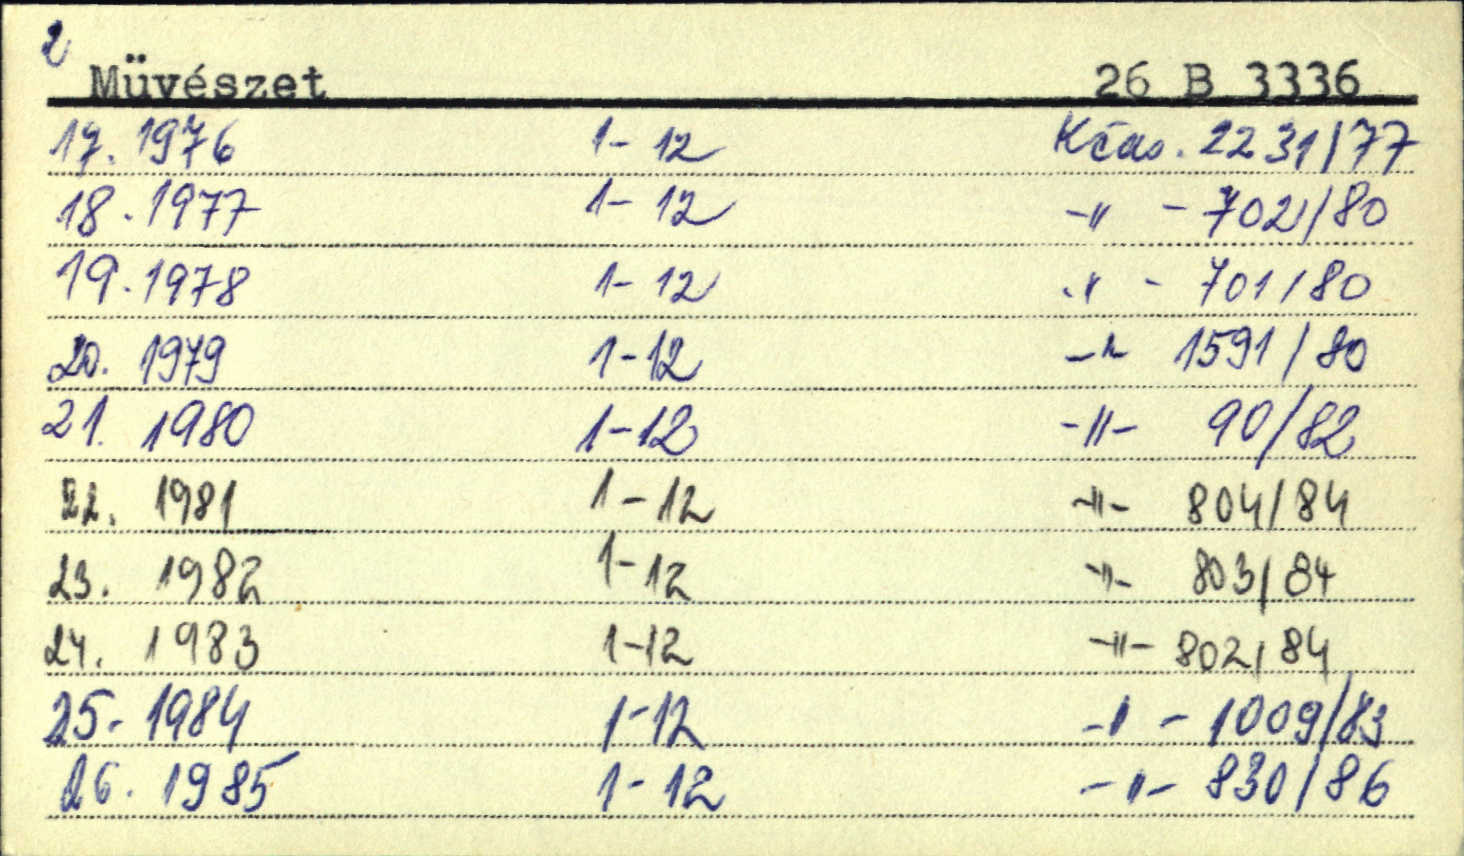 2
Müvészet 26 B 3336
17. 1976 1-12 Kčas. 2231/77
18. 1977 1-12 -"- 702/80
19. 1978 1-12 -"- 701/80
20. 1979 1-12 -"- 1591/80
21. 1980 1-12 -"- 90/82
22. 1981 1-12 -"- 804/84
23. 1982 1-12 -"- 803/84
24. 1983 1-12 -"- 802/84
25. 1984 1-12 -"- 1009/83
26. 1985 1-12 -"- 830/86